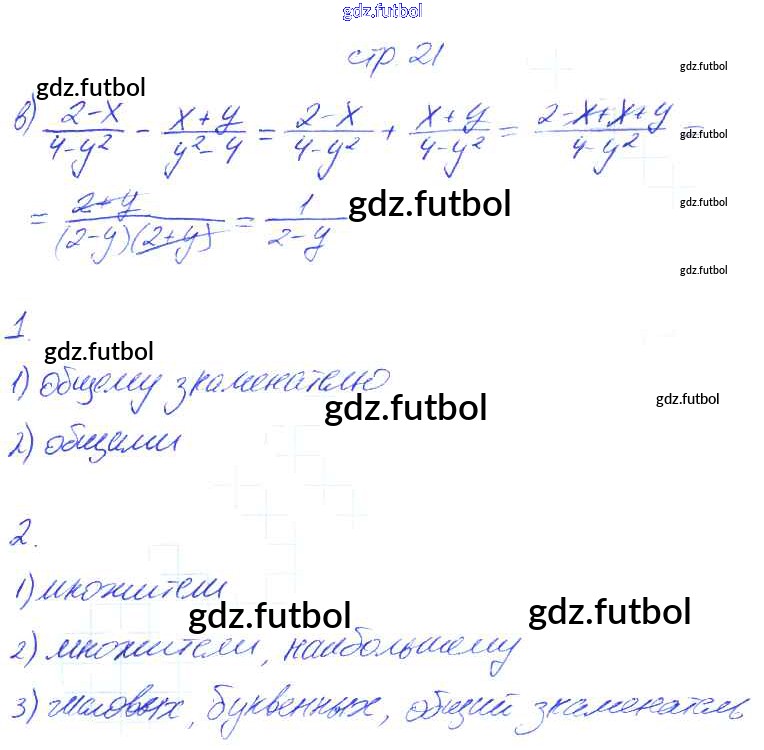 gdz.futbol
стр. 21
gdz.futbol
gdz.futbol
в) (2-x)/(4-y²) - (x+y)/(y²-4) = (2-x)/(4-y²) + (x+y)/(4-y²) = (2-x+x+y)/(4-y²) =
gdz.futbol
= (2+y)/((2-y)(2+y)) = 1/(2-y)
gdz.futbol
gdz.futbol
gdz.futbol
1.
gdz.futbol
1) общему знаменателю
gdz.futbol
gdz.futbol
2) общими
2.
1) множители
gdz.futbol
gdz.futbol
2) множители, наибольшему
3) числовых, буквенных, общий знаменатель